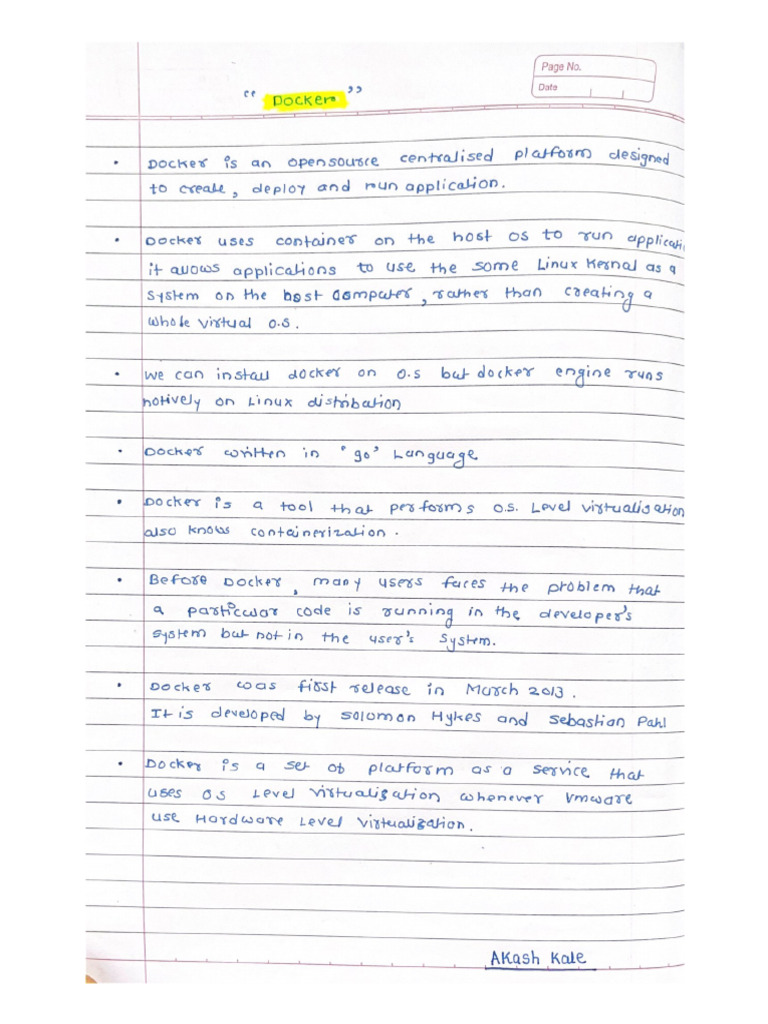 Page No.
Date
"Docker"
• Docker is an opensource centralised platform designed
to create, deploy and run application.
• Docker uses container on the host os to run applicati
it allows applications to use the some Linux Kernal as a
System on the host computer, rather than creating a
whole virtual o.s.
• we can install docker on o.s but docker engine runs
notively on Linux distribation
• Docker written in 'go' Language
• Docker is a tool that performs o.s. Level virtualisation
also knows containerization.
• Before Docker, many users faces the problem that
a particular code is running in the developer's
system but not in the user's system.
• Docker was first release in March 2013.
It is developed by Solomon Hykes and Sebastian Pahl
• Docker is a set of platform as a service that
uses os Level virtualization whenever Vmware
use Hardware Level virtualization.
Akash Kale